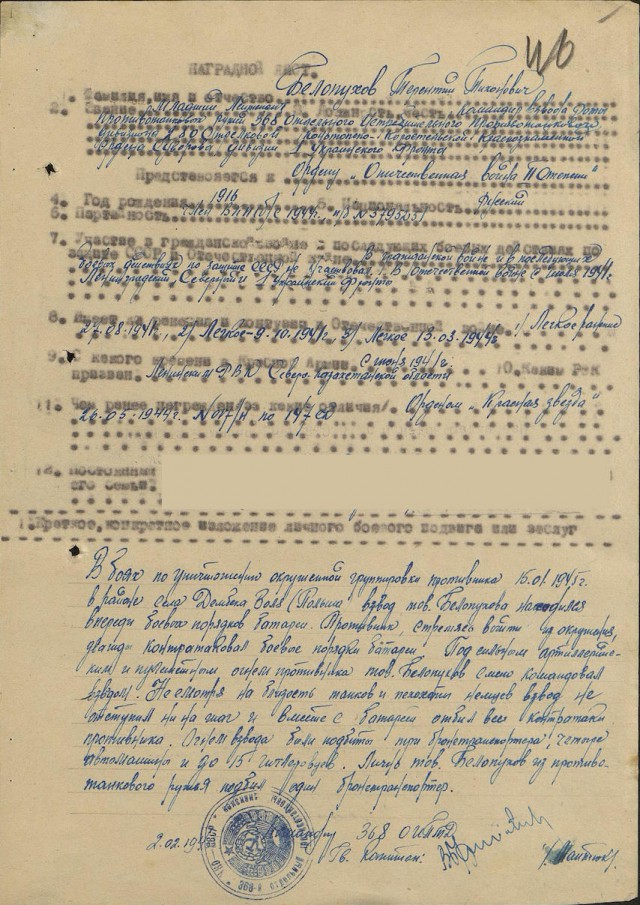 НАГРАДНОЙ ЛИСТ.
1. Фамилия, имя и отчество Белопухов Терентий Тихонович
2. Звание Младший Лейтенант командир взвода роты
противотанковых ружей 368 Отдельного Истребительного Противотанкового
дивизиона 280 Стрелковой Конотопско-Коростенской Краснознаменной
Ордена Суворова дивизии 1 Украинского Фронта
Представляется к Ордену „Отечественная война II Степени"
4. Год рождения 1916 5. Национальность русский
6. Партийность 1944г.
7. Участие в гражданской войне и последующих боевых действиях по
защите СССР и Отечественной войне В гражданской войне и в последующих
боевых действиях по защите СССР не участвовал. В Отечественной войне с июля 1941г.
Ленинградский, 1 Украинский Фронт
8. Имеет ли ранения и контузии в Отечественной войне 1/ Легкое ранение
27.08.1941г., 2/ Легкое-9.10.1941г., 3/ Легкое 15.03.1944г.
9. С какого времени в Красной Армии С июня 1941г. 10. Каким РВК
призван. Ленинским РВК Северо-Казахстанской области
11. Чем ранее награжден /за какие отличия/ Орденом „Красная звезда"
26.05.1944г. N 017/Н по 147 СД
12. Постоянный
его семьи.
1. Краткое, конкретное изложение личного боевого подвига или заслуг
В боях по уничтожению окруженной группировки противника 15.01.1945г.
в районе села Дембска Воля (Польша) взвод тов. Белопухова находился
впереди боевых порядков батареи. Противник, стремясь выйти из окружения,
дважды контратаковал боевые порядки батареи. Под сильным артиллерийс-
ким и пулеметным огнем противника тов. Белопухов смело командовал
взводом. Не смотря на близость танков и пехоты немцев взвод не
отступил ни на шаг и вместе с батареей отбил все контратаки
противника. Огнем взвода были подбиты три бронетранспортера, четыре
автомашины и до 15 гитлеровцев. Лично тов. Белопухов из противо-
танкового ружья подбил один бронетранспортер.
2.02.19 Командир 368 ОИПТД
Гв. капитан: